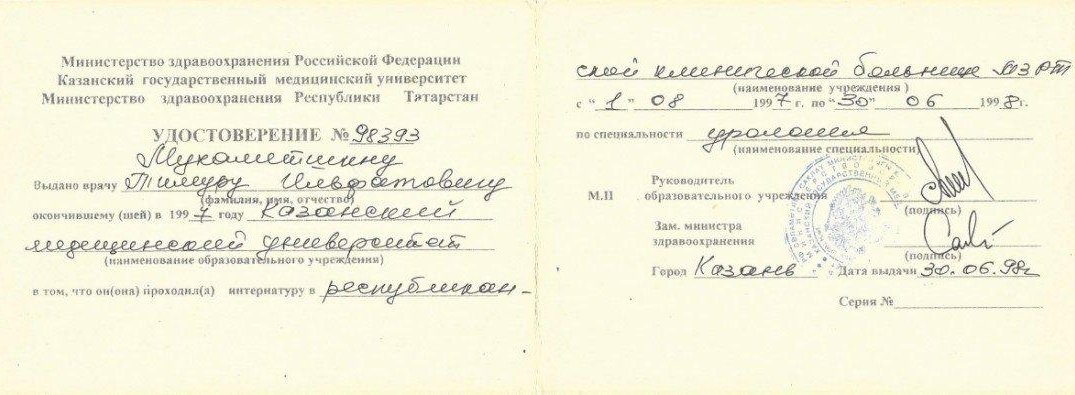 Министерство здравоохранения Российской Федерации
Казанский государственный медицинский университет
Министерство здравоохранения Республики Татарстан
УДОСТОВЕРЕНИЕ № 98393
Мухаметшину
Выдано врачу Тимуру Ильфатовичу
(фамилия, имя, отчество)
окончившему (шей) в 1997 году Казанский
медицинский университет
(наименование образовательного учреждения)
в том, что он(она) проходил(а) интернатуру в республикан-
ской клинической больнице МЗ РТ
(наименование учреждения )
с "1" 08 1997 г. по "30" 06 1998 г.
по специальности урология
(наименование специальности)
Руководитель
М.П образовательного учреждения
(подпись)
Зам. министра
здравоохранения
(подпись)
Город Казань Дата выдачи 30.06.98г
Серия №